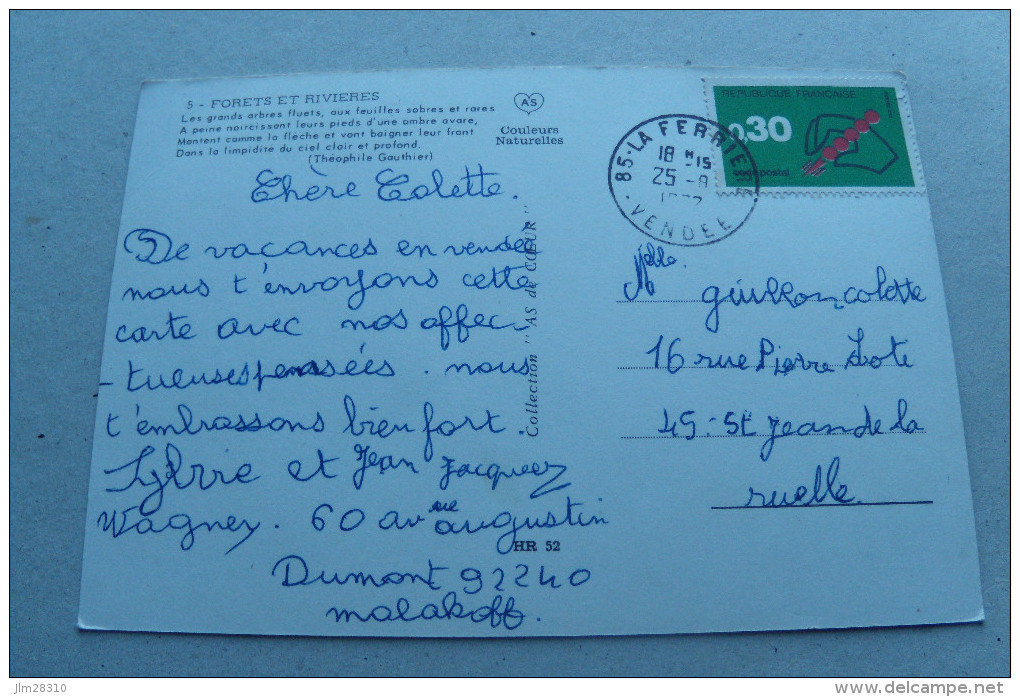 5 - FORETS ET RIVIERES
Les grands arbres fluets, aux feuilles sobres et rares
A peine noircissant leurs pieds d'une ombre avare,
Montent comme la flèche et vont baigner leur front
Dans la limpidité du ciel clair et profond.
(Théophile Gauthier)
AS
Couleurs
Naturelles
REPUBLIQUE FRANÇAISE
0,30
code postal
85-LA FERRIERE
18 H -15
25 -8
VENDEE
Chère Colette.
De vacances en vendée
nous t'envoyons cette
carte avec nos affec-
-tueuses pensées. nous
t'embrassons bien fort.
Sylvie et Jean Jacques
Wagney. 60 avenue augustin
Dumont 92240
malakoff.
Collection "AS de CŒUR"
HR 52
Melle.
guillon colette
16 rue Pierre Loti
45-St Jean de la
ruelle.
jlm28310
www.delcampe.net